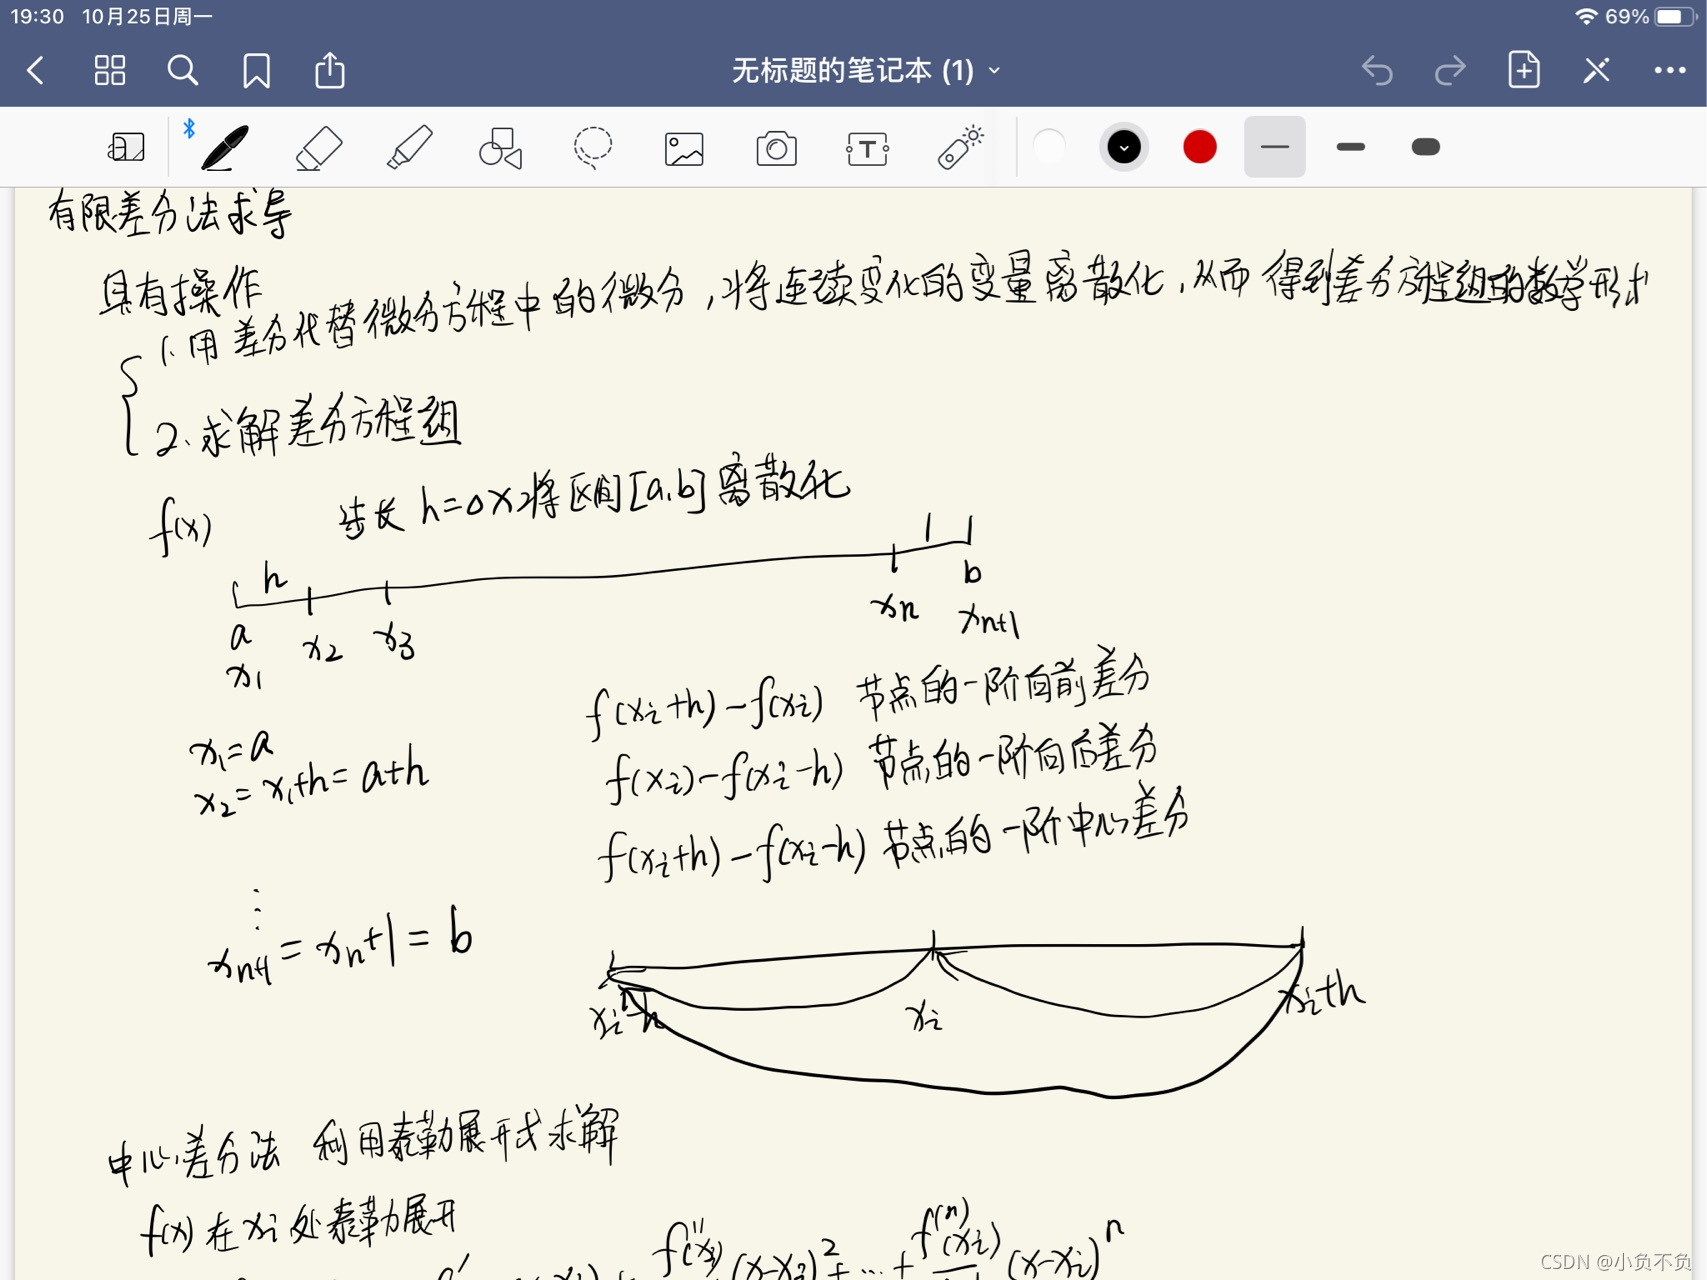 19:30 10月25日周一
69%
无标题的笔记本 (1)
有限差分法求导
具有操作
1. 用差分代替微分方程中的微分,将连续变化的变量离散化,从而得到差分方程组的数学形式
2. 求解差分方程组
f(x) 步长 h=△x将区间[a,b]离散化
h
a x₂ x₃ xn b
x₁ xn+1
f(xi+h)-f(xi) 节点的一阶向前差分
x₁=a
f(xi)-f(xi-h) 节点的一阶向后差分
x₂=x₁+h=a+h
f(xi+h)-f(xi-h) 节点的一阶中心差分
⋮
xn+1=xn+1=b
xi-h xi xi+h
中心差分法 利用泰勒展开式求解
f(x)在xi处泰勒展开
f''(xi) (x-xi)²+…+ f⁽ⁿ⁾(xi) (x-xi)ⁿ
CSDN @小负不负